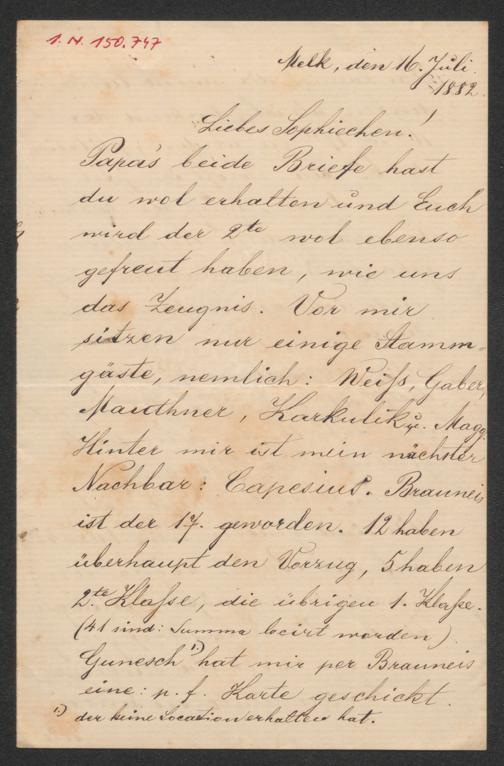 I. N. 150.747
Melk, den 16. Juli
1882.
Liebes Sophiechen!
Papa's beide Briefe hast
du wol erhalten und Euch
wird der 2te wol ebenso
gefreut haben, wie uns
das Zeugnis. Vor mir
sitzen nur einige Stamm-
gäste, nemlich: Weiß, Gaber,
Mauthner, Karkulik u. Magg.
Hinter mir ist mein nächster
Nachbar: Capesius. Brauneis
ist der 17. geworden. 12 haben
überhaupt den Vorzug, 5 haben
2te Klasse, die übrigen 1. Klasse.
(41 sind: Summa locirt worden)
Gunesch 1) hat mir per Brauneis
eine: p. f. Karte geschickt.
1.) der keine Location erhalten hat.